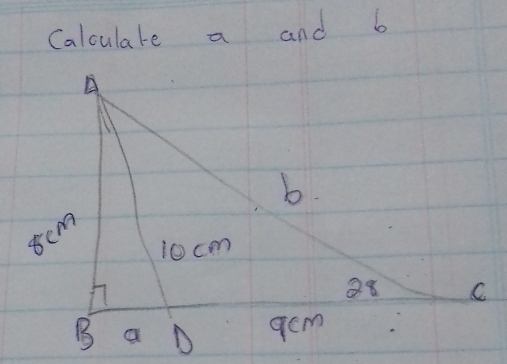 Calculate a and b
A
b.
8cm
10cm
28
C
B
a
D
9cm